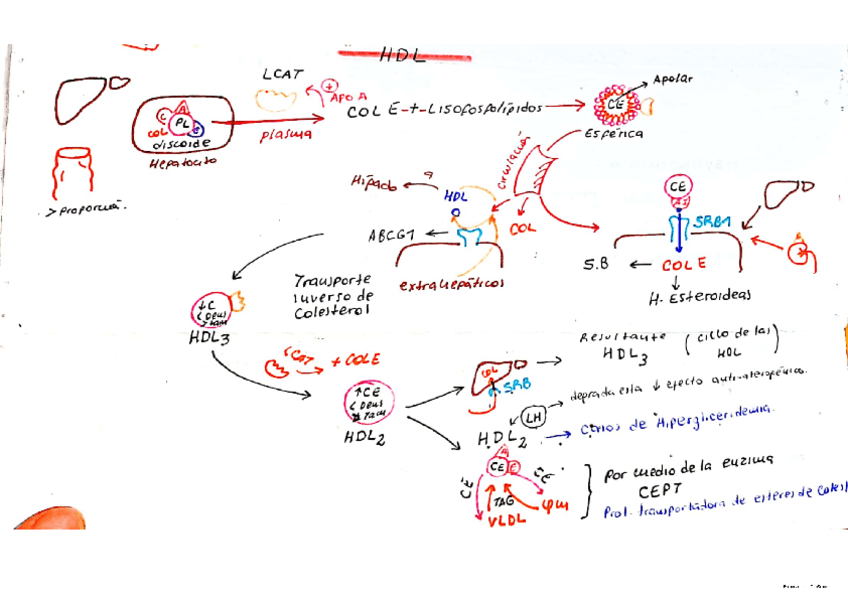 HDL
LCAT
+
APO A
COL E-+-Lisofosfolípidos
Apolar
CE
Esférica
C
A
PL
E
COL
discoide
Hepatocito
plasma
> proporción.
circulación
Hígado
HDL
COL
ABCG1
extrahepáticos
Transporte
inverso de
Colesterol
CE
A1
SRB1
S.B
COL E
H. Esteroideas
↓C
HDL3
LCAT
+ COLE
↑CE
HDL2
COL
SRB
Resultante
HDL3
(Ciclo de las
HDL)
LH
degrada esta ↓ efecto antiaterogénico.
HDL2
Casos de Hipergliceridemia.
A
CE
E
CE
CE
TAG
VLDL
QM
Por medio de la enzima
CEPT
Prot. transportadora de esteres de colest